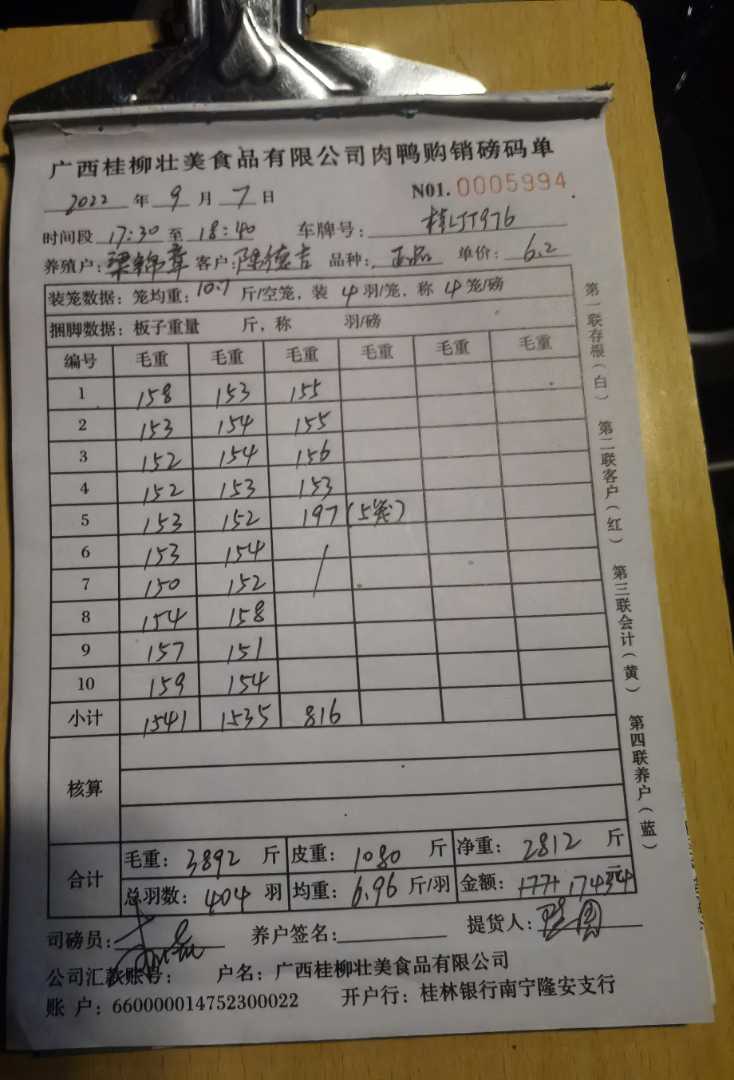 广西桂柳壮美食品有限公司肉鸭购销磅码单
2022 年 9 月 7 日 N01. 0005994
时间段 17:30 至 18:40 车牌号: 桂LJT976
养殖户: 梁锦章 客户: 陈德吉 品种: 正品 单价: 6.2
装笼数据: 笼均重: 10.7 斤/空笼, 装 4 羽/笼, 称 4 笼/磅
捆脚数据: 板子重量 斤, 称 羽/磅
编号 毛重 毛重 毛重 毛重 毛重 毛重
1 158 153 155
2 153 154 155
3 152 154 156
4 152 153 153
5 153 152 197 (5笼)
6 153 154 /
7 150 152
8 154 158
9 157 151
10 159 154
小计 1541 1535 816
核算
合计 毛重: 3892 斤 皮重: 1080 斤 净重: 2812 斤
总羽数: 404 羽 均重: 6.96 斤/羽 金额: 17434 元
司磅员: 养户签名: 提货人:
公司汇款账号: 户名: 广西桂柳壮美食品有限公司
账 户: 660000014752300022 开户行: 桂林银行南宁隆安支行
第一联存根(白) 第二联客户(红) 第三联会计(黄) 第四联养户(蓝)